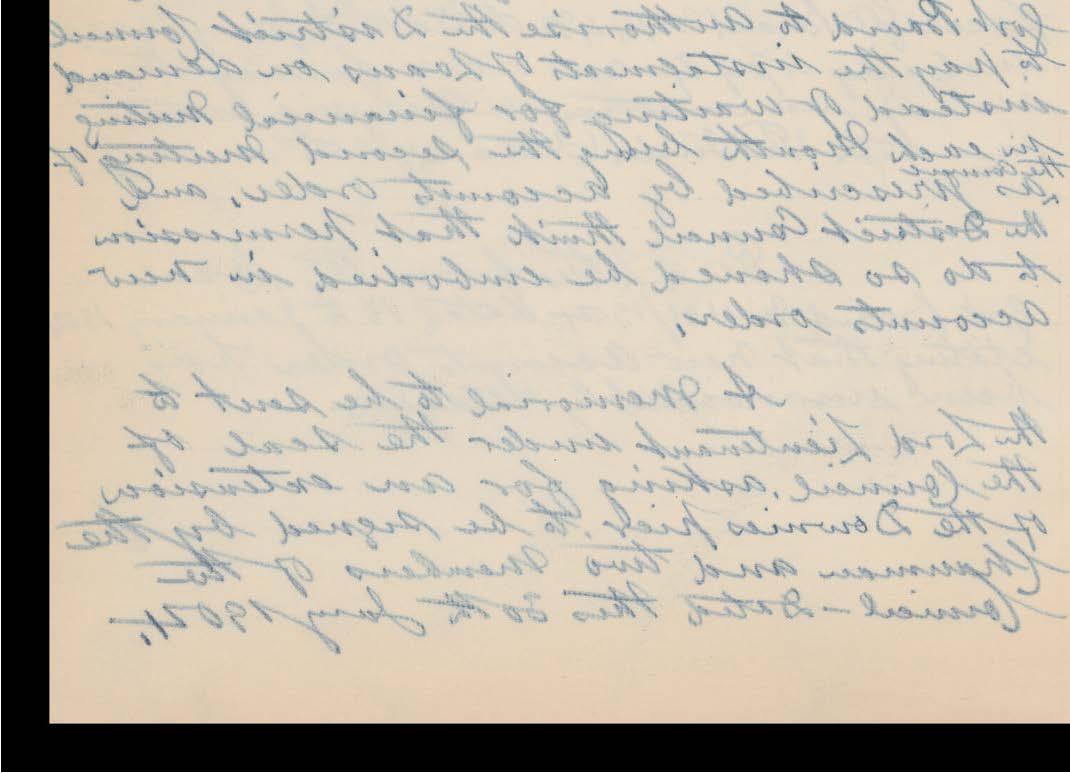 Govt Board to authorise the District Council
to pay the instalments of Loans on demand,
instead of waiting for financial meeting
in each Month being the second meeting of
the Council
as prescribed by accounts order, and
the District Council think that permission
to do so should be embodied in new
accounts order.
A Memorial to be sent to
the Lord Lieutenant under the seal of
the Council, asking for an extension
of the Downies pier, to be signed by the
Chairman and two Members of the
Council – Dated this 30th Jany 1904.